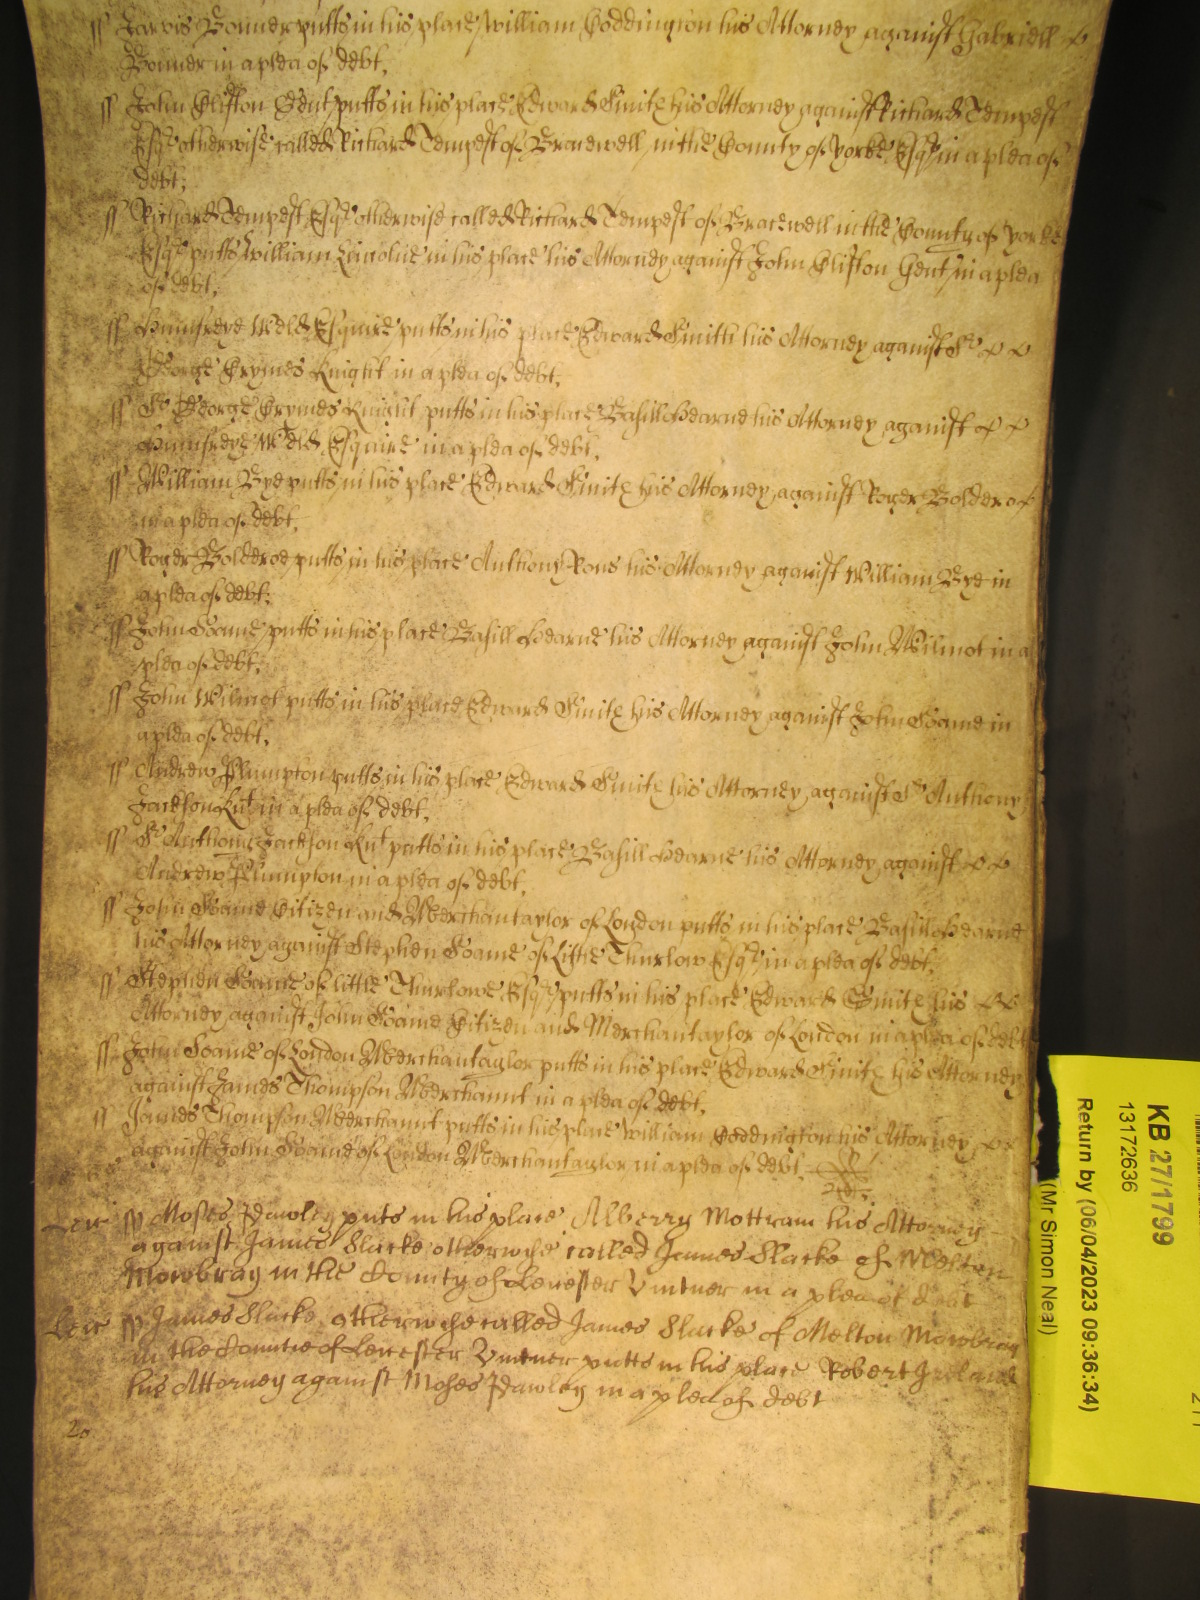 ss Jarvis Bonner putts in his place William Coddington his Attorney against Gabriell
Bonner in a plea of debt.
ss John Clifton Gent putts in his place Edward Smith his Attorney against Richard Tempest
Esqr otherwise called Richard Tempest of Bracewell in the County of Yorke Esqr in a plea of
debt.
ss Richard Tempest Esqr otherwise called Richard Tempest of Bracewell in the County of Yorke
Esqr putts William Lincolne in his place his Attorney against John Clifton Gent in a plea
of debt.
ss Humfreye Weld Esquire putts in his place Edward Smith his Attorney against Sr
George Crymes Knight in a plea of debt.
ss Sr George Crymes Knight putts in his place Basill Hearne his Attorney against
Humfreye Weld Esquire in a plea of debt.
ss William Bye putts in his place Edward Smith his Attorney against Roger Boldero
in a plea of debt.
ss Roger Bolderoe putts in his place Anthony Rous his Attorney against William Bye in
a plea of debt.
ss John Soame putts in his place Basill Hearne his Attorney against John Wilmot in a
plea of debt.
ss John Wilmot putts in his place Edward Smith his Attorney against John Soame in
a plea of debt.
ss Andrew Plumpton putts in his place Edward Smith his Attorney against Sr Anthony
Jackson Knt in a plea of debt.
ss Sr Anthony Jackson Knt putts in his place Basill Hearne his Attorney against
Andrew Plumpton in a plea of debt.
ss John Soame Citizen and Merchantaylor of London putts in his place Basill Hearne
his Attorney against Stephen Soame of Little Thurlow Esqr in a plea of debt.
ss Stephen Soame of little Thurlowe Esqr putts in his place Edward Smith his
Attorney against John Soame Citizen and Merchantaylor of London in a plea of debt
ss John Soame of London Merchantaylor putts in his place Edward Smith his Attorney
against James Thompson Merchannt in a plea of debt.
ss James Thompson Merchannt putts in his place William Coddington his Attorney
against John Soame of London Merchantaylor in a plea of debt.
Leic ss Moses Pawley puts in his place Alberry Mottram his Attorney
against James Slacke otherwise called James Slacke of Melton
Mowbray in the County of Leicester Vintner in a plea of debt
Leic ss James Slacke otherwise called James Slacke of Melton Mowbray
in the Countie of Leicester Vintner putts in his place Robert Ireland
his Attorney against Moses Pawley in a plea of debt
20
KB 27/1799
13172636
Return by (06/04/2023 09:36:34)
(Mr Simon Neal)